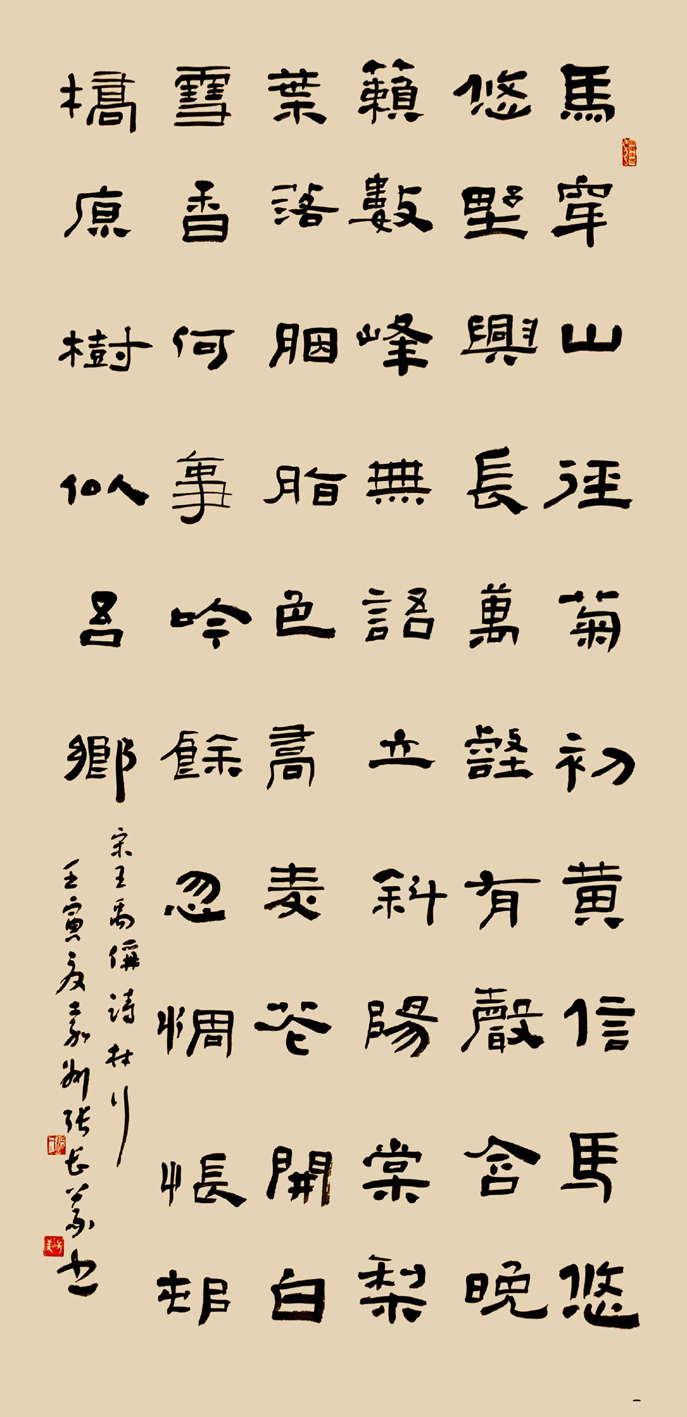 馬穿山徑菊初黃信馬悠
悠野興長萬壑有聲含晚
籟數峰無語立斜陽棠梨
葉落胭脂色喬麦花開白
雪香何事吟餘忽惆悵邨
橋原樹似吾鄉
宋王禹偁詩村行
壬寅夏州张长书